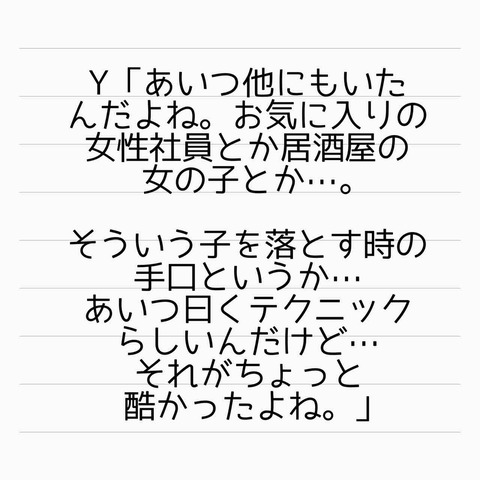 Y「あいつ他にもいた
んだよね。お気に入りの
女性社員とか居酒屋の
女の子とか…。
そういう子を落とす時の
手口というか…
あいつ曰くテクニック
らしいんだけど…
それがちょっと
酷かったよね。」